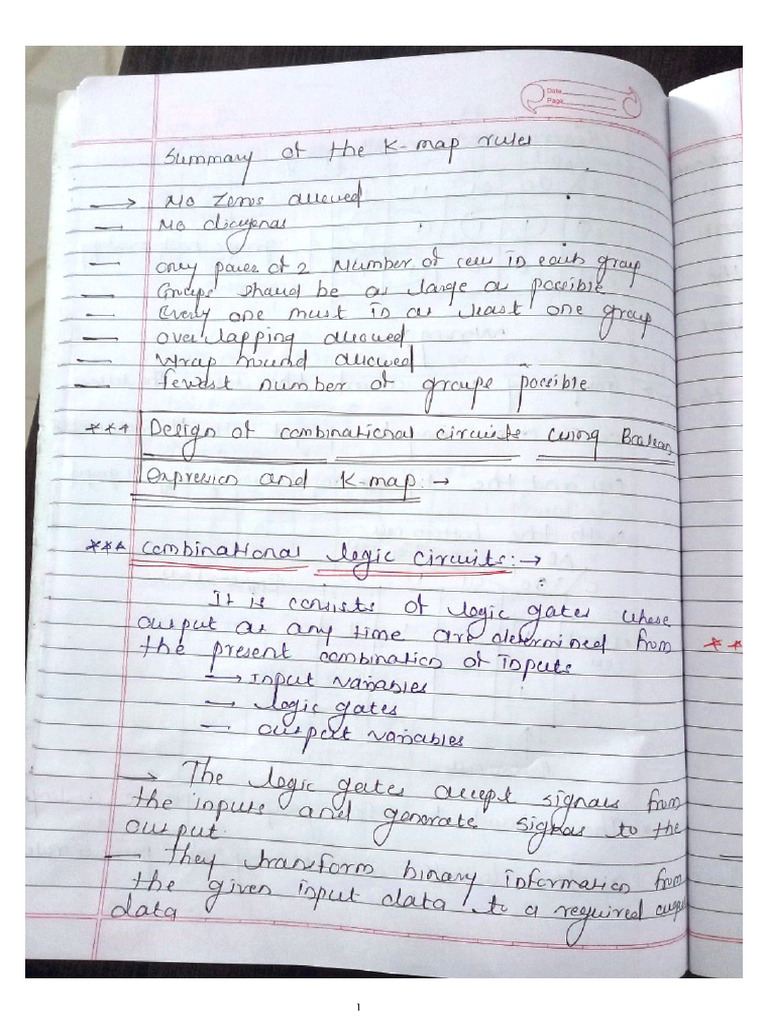 Date
Page
Summary of the K-map rules
→ No zeros allowed
— No diagonas
— only power of 2 Number of cells in each group
— Groups should be as large as possible
— Every one must in at least one group
— overlapping allowed
— Wrap round allowed
— fewest number of groups possible
*** Design of combinational circuits using Boolean
Expression and K-map:→
*** Combinational logic circuits:→
It is consists of logic gates whose
output at any time are determined from
the present combination of inputs
→ Input variables
— logic gates
— output variables
→ The logic gates accept signals from
the inputs and generate signals to the
output.
— They transform binary information from
the given input data to a required output
data
**
1